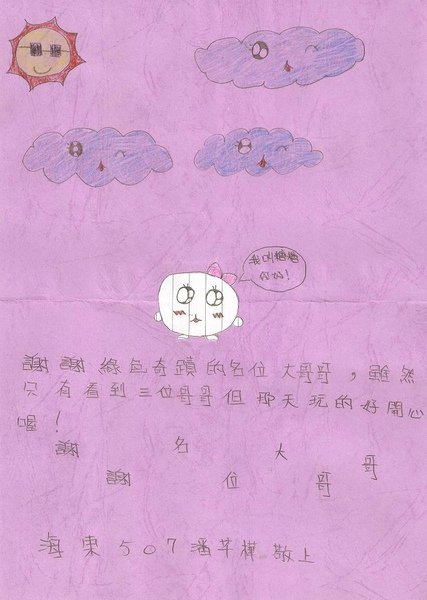 我叫
你好!
謝謝綠色奇蹟的名位大哥哥,雖然
只有看到三位哥哥但那天玩的好開心
喔!
謝 名 大 哥
謝 位 哥
海東507潘芊樺敬上